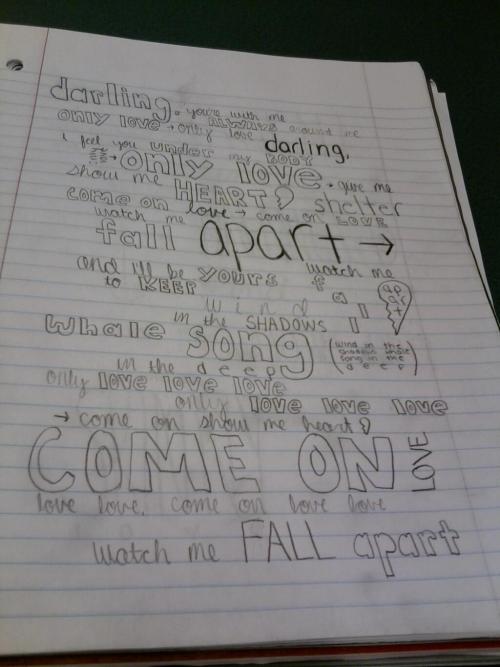 darling. you're with me
only love → ALWAYS around me
only love darling,
i feel you under my BODY
→ only love
show me HEART → give me
come on shelter
watch me love → come on LOVE
fall apart →
and i'll be YOURS watch me
to KEEP f a l l ap ar t
wind
in the SHADOWS
whale song (wind in the shadows whale song in the deep)
in the deep
only love love love
only love love love
→ come on show me heart
COME ON LOVE
love love, come on love love
watch me FALL apart